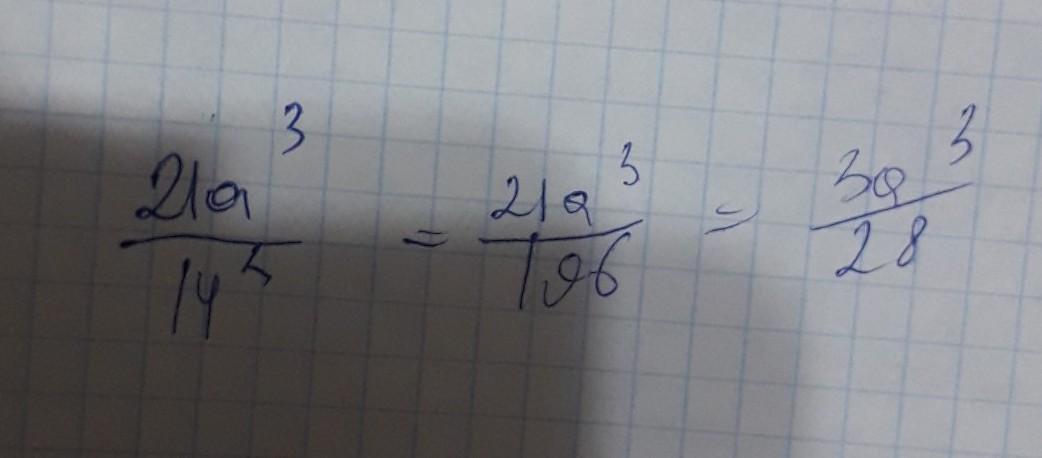 21a³/14² = 21a³/196 = 3a³/28